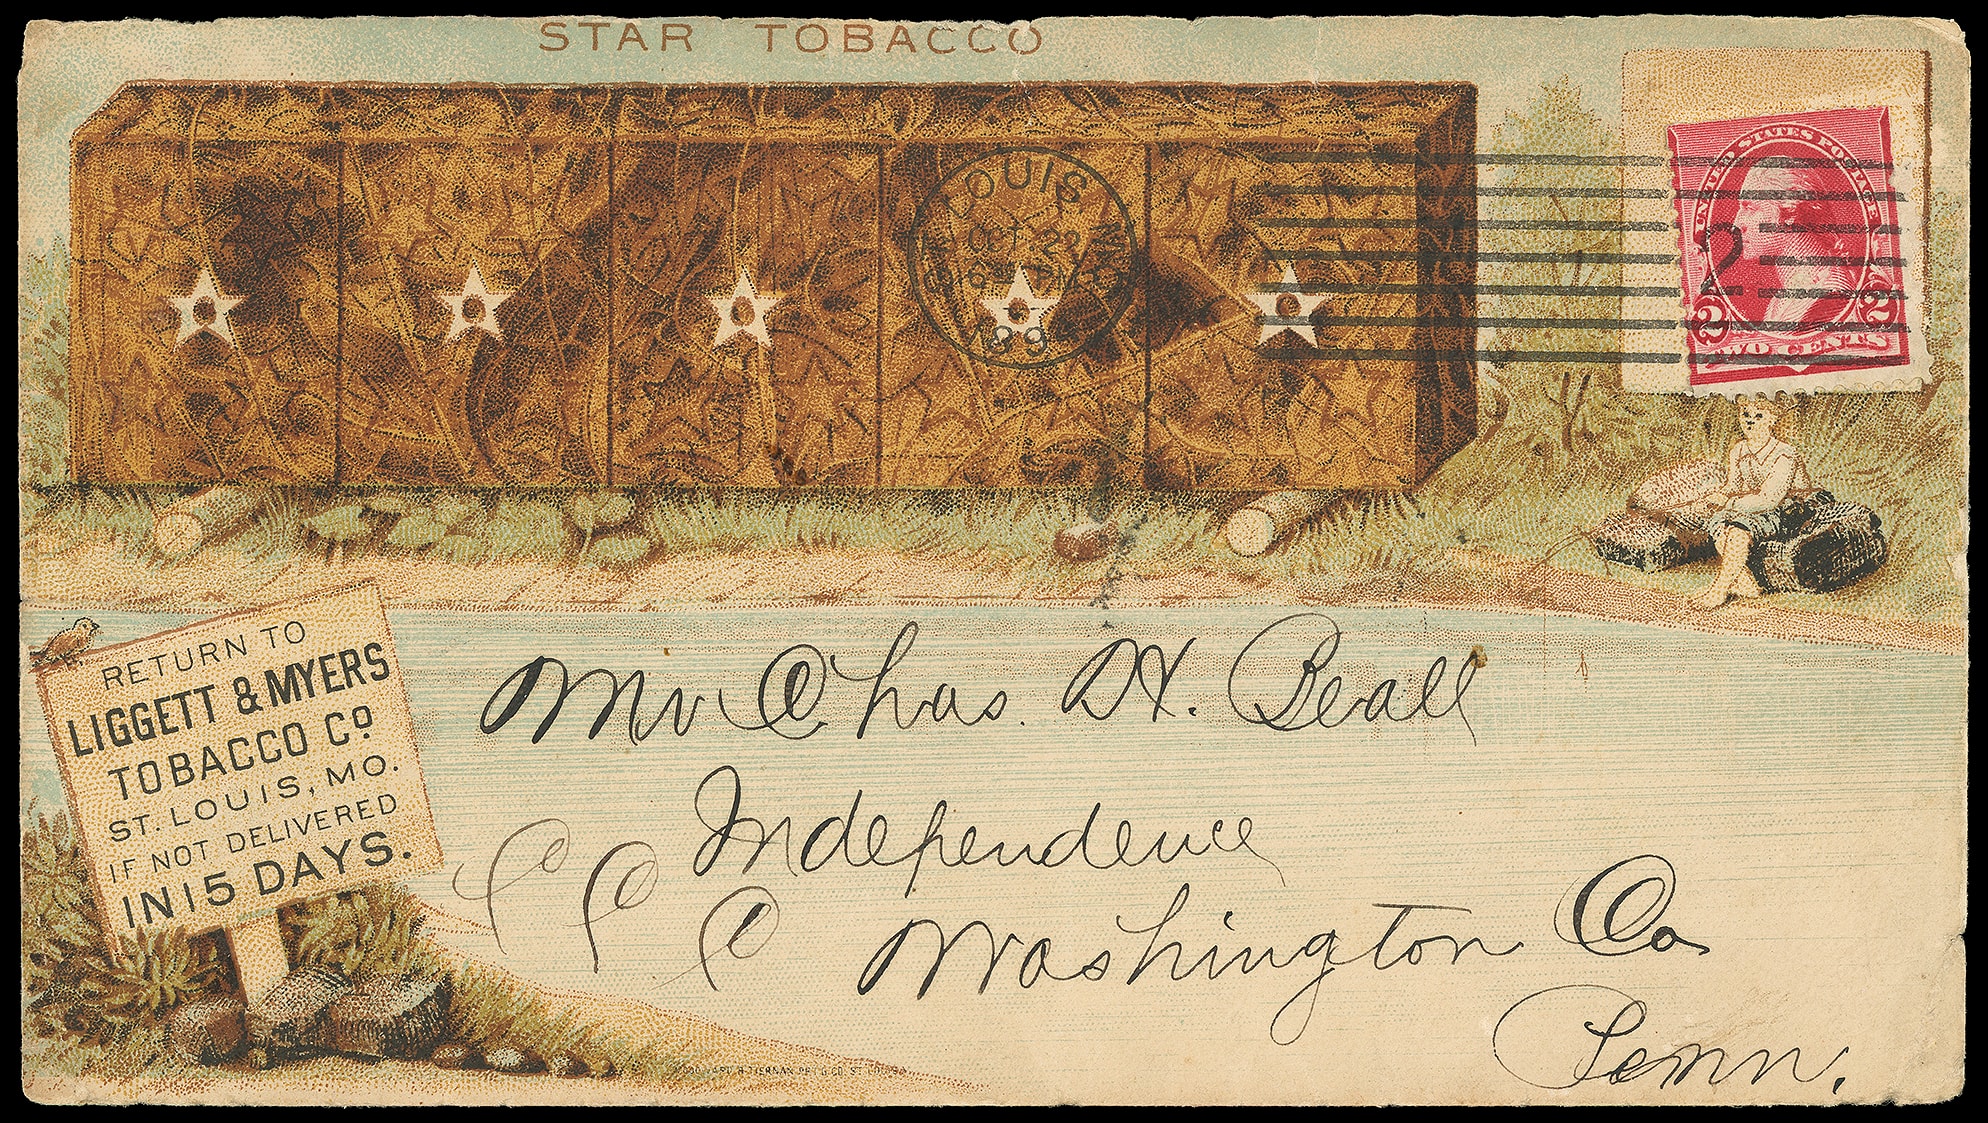 STAR TOBACCO
LOUIS
OCT 22
189
UNITED STATES POSTAGE
2
2 2
TWO CENTS
RETURN TO
LIGGETT & MYERS
TOBACCO Co
ST. LOUIS, MO.
IF NOT DELIVERED
IN 15 DAYS.
Mr Chas. H. Beall
Independence
Washington Co
Penn.